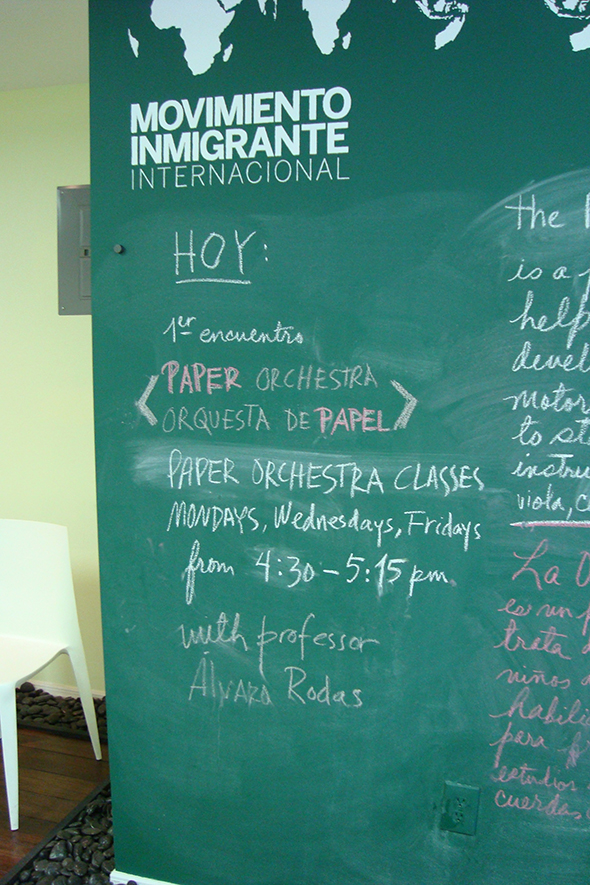 MOVIMIENTO
INMIGRANTE
INTERNACIONAL
HOY:
1er encuentro
PAPER ORCHESTRA
ORQUESTA DE PAPEL
PAPER ORCHESTRA CLASSES
MONDAYS, Wednesdays, Fridays
from 4:30 - 5:15 pm
with professor
Álvaro Rodas
the
is a
help
devel
motor
to st
instru
viola, c
La O
es un p
trata d
niños
habili
para
estudios
cuerdas